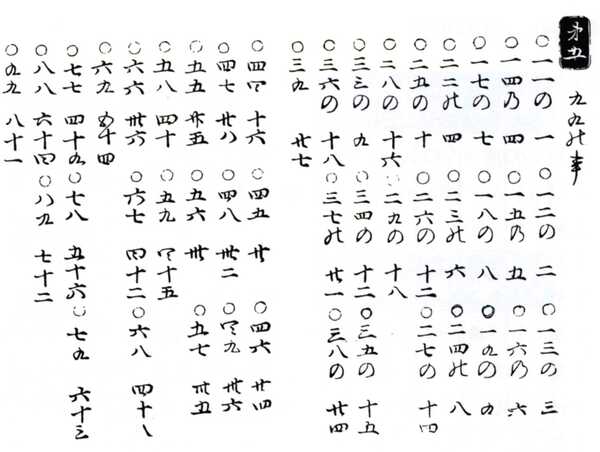 第五 九九の事
○一一の 一 ○一二の 二 ○一三の 三
○一四乃 四 ○一五乃 五 ○一六乃 六
○一七の 七 ○一八の 八 ○一九の 九
○二二の 四 ○二三の 六 ○二四の 八
○二五の 十 ○二六の 十二 ○二七の 十四
○二八の 十六 ○二九の 十八
○三三の 九 ○三四の 十二 ○三五の 十五
○三六の 十八 ○三七の 廿一 ○三八の 廿四
○三九 廿七
○四四 十六 ○四五 廿 ○四六 廿四
○四七 廿八 ○四八 卅二 ○四九 卅六
○五五 廿五 ○五六 卅 ○五七 卅五
○五八 四十 ○五九 四十五
○六六 卅六 ○六七 四十二 ○六八 四十八
○六九 五十四
○七七 四十九 ○七八 五十六 ○七九 六十三
○八八 六十四 ○八九 七十二
○九九 八十一